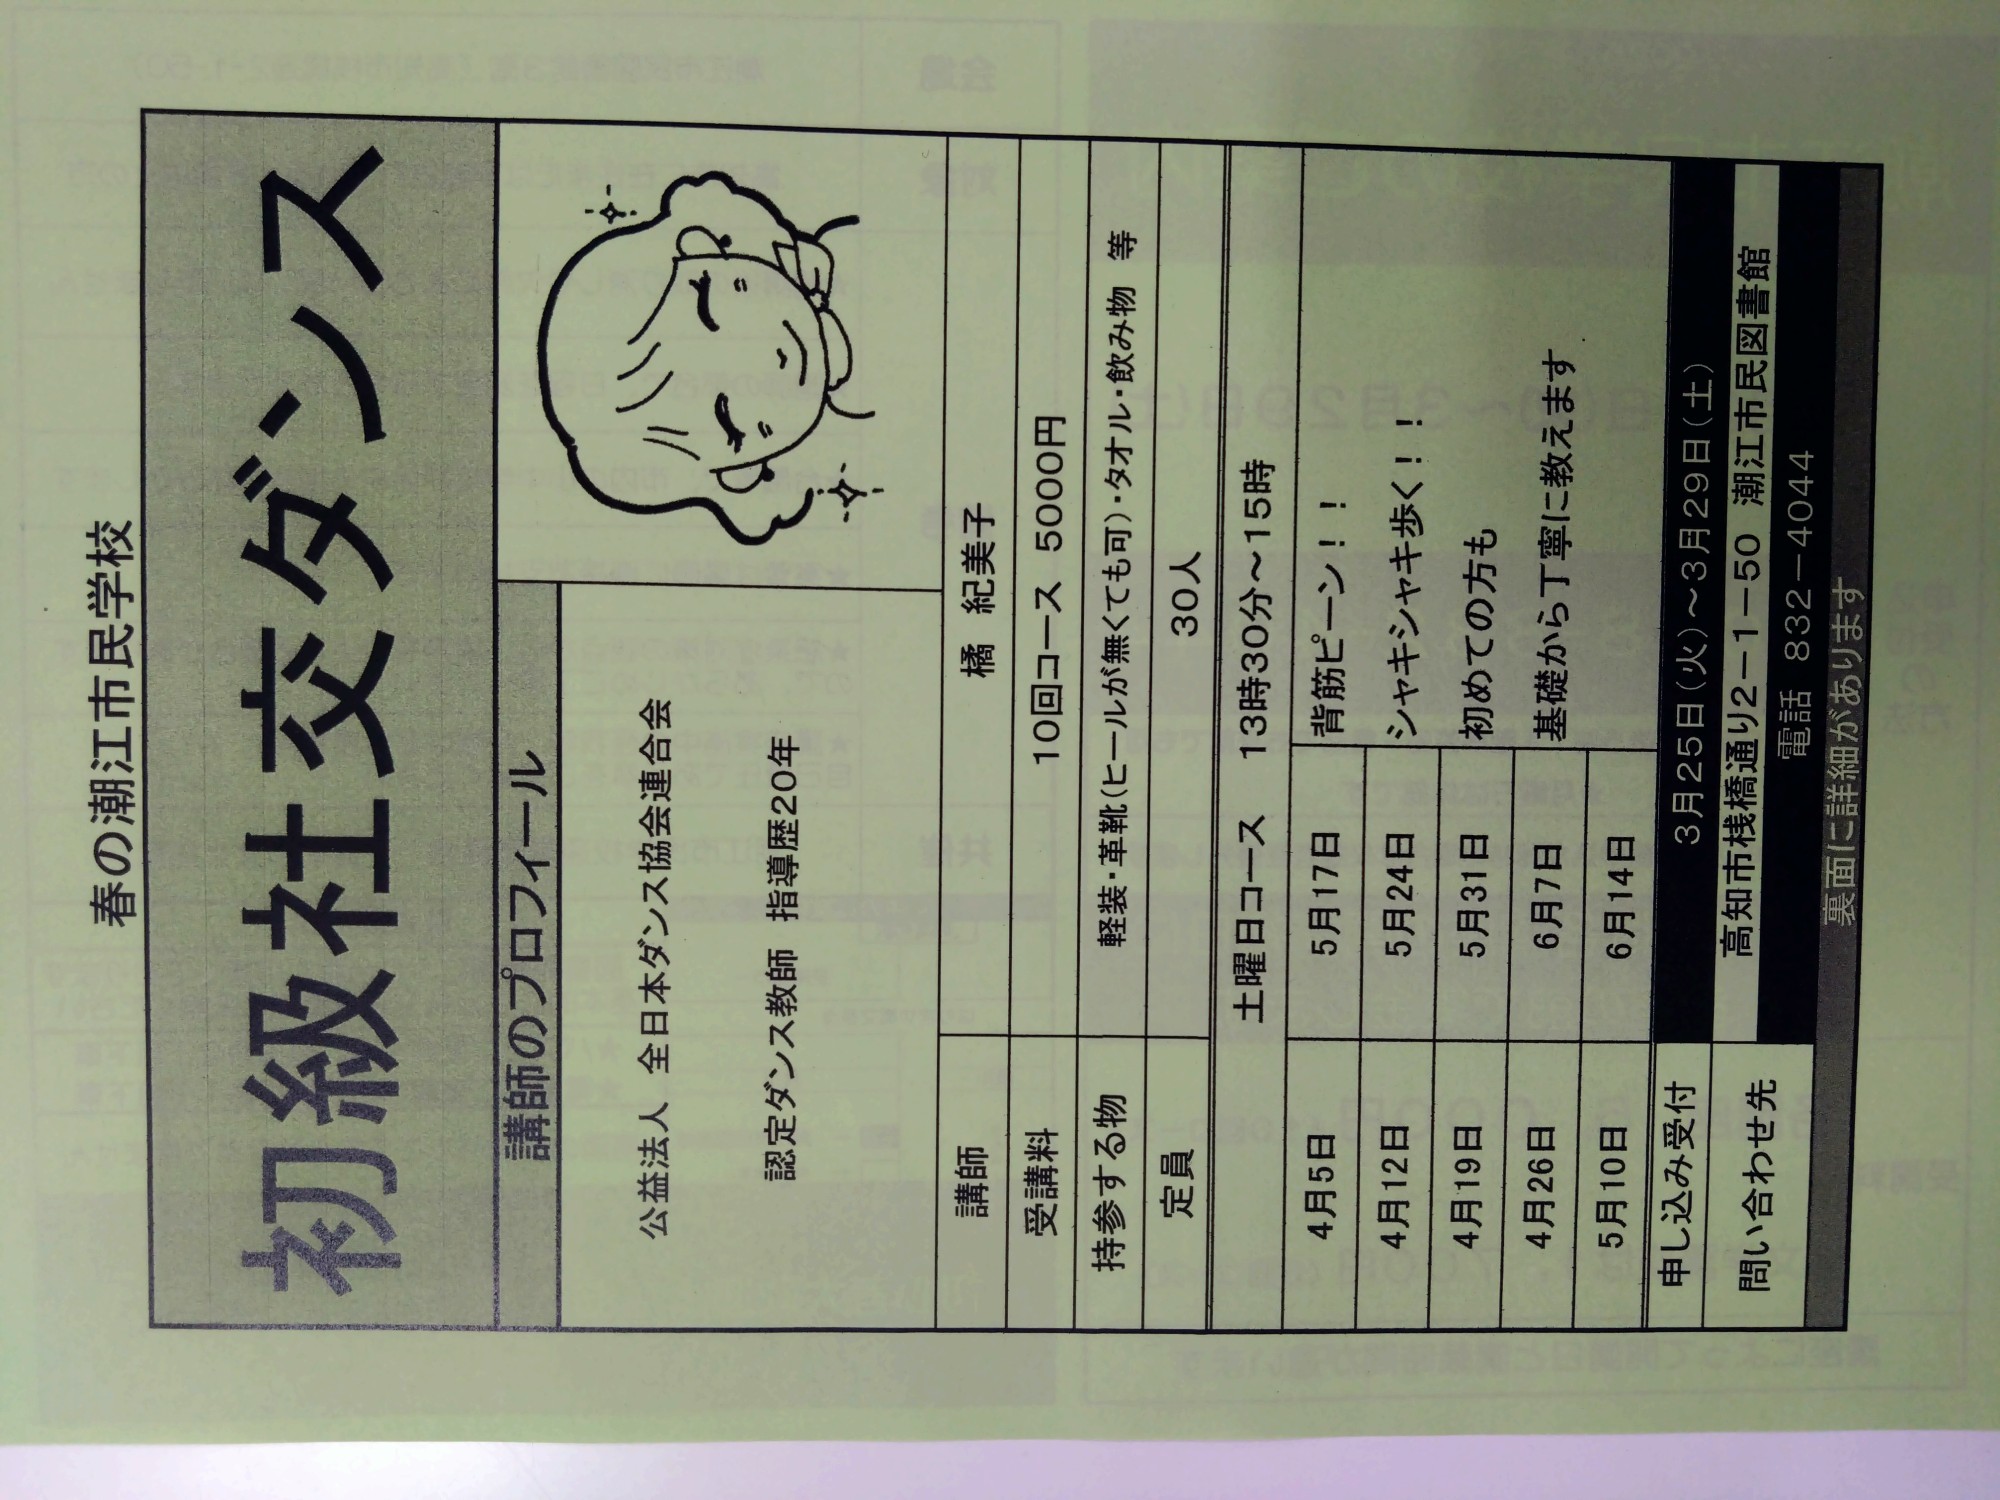 春の潮江市民学校
初級社交ダンス
講師のプロフィール
公益法人 全日本ダンス協会連合会
認定ダンス教師 指導歴20年
講師 橘 紀美子
受講料 10回コース 5000円
持参する物 軽装・革靴(ヒールが無くても可)・タオル・飲み物 等
定員 30人
土曜日コース 13時30分～15時
4月5日 5月17日 背筋ピーン！！
4月12日 5月24日 シャキシャキ歩く！！
4月19日 5月31日 初めての方も
4月26日 6月7日 基礎から丁寧に教えます
5月10日 6月14日
申し込み受付 3月25日(火)～3月29日(土)
問い合わせ先 高知市桟橋通り2－1－50 潮江市民図書館
電話 832－4044
裏面に詳細があります